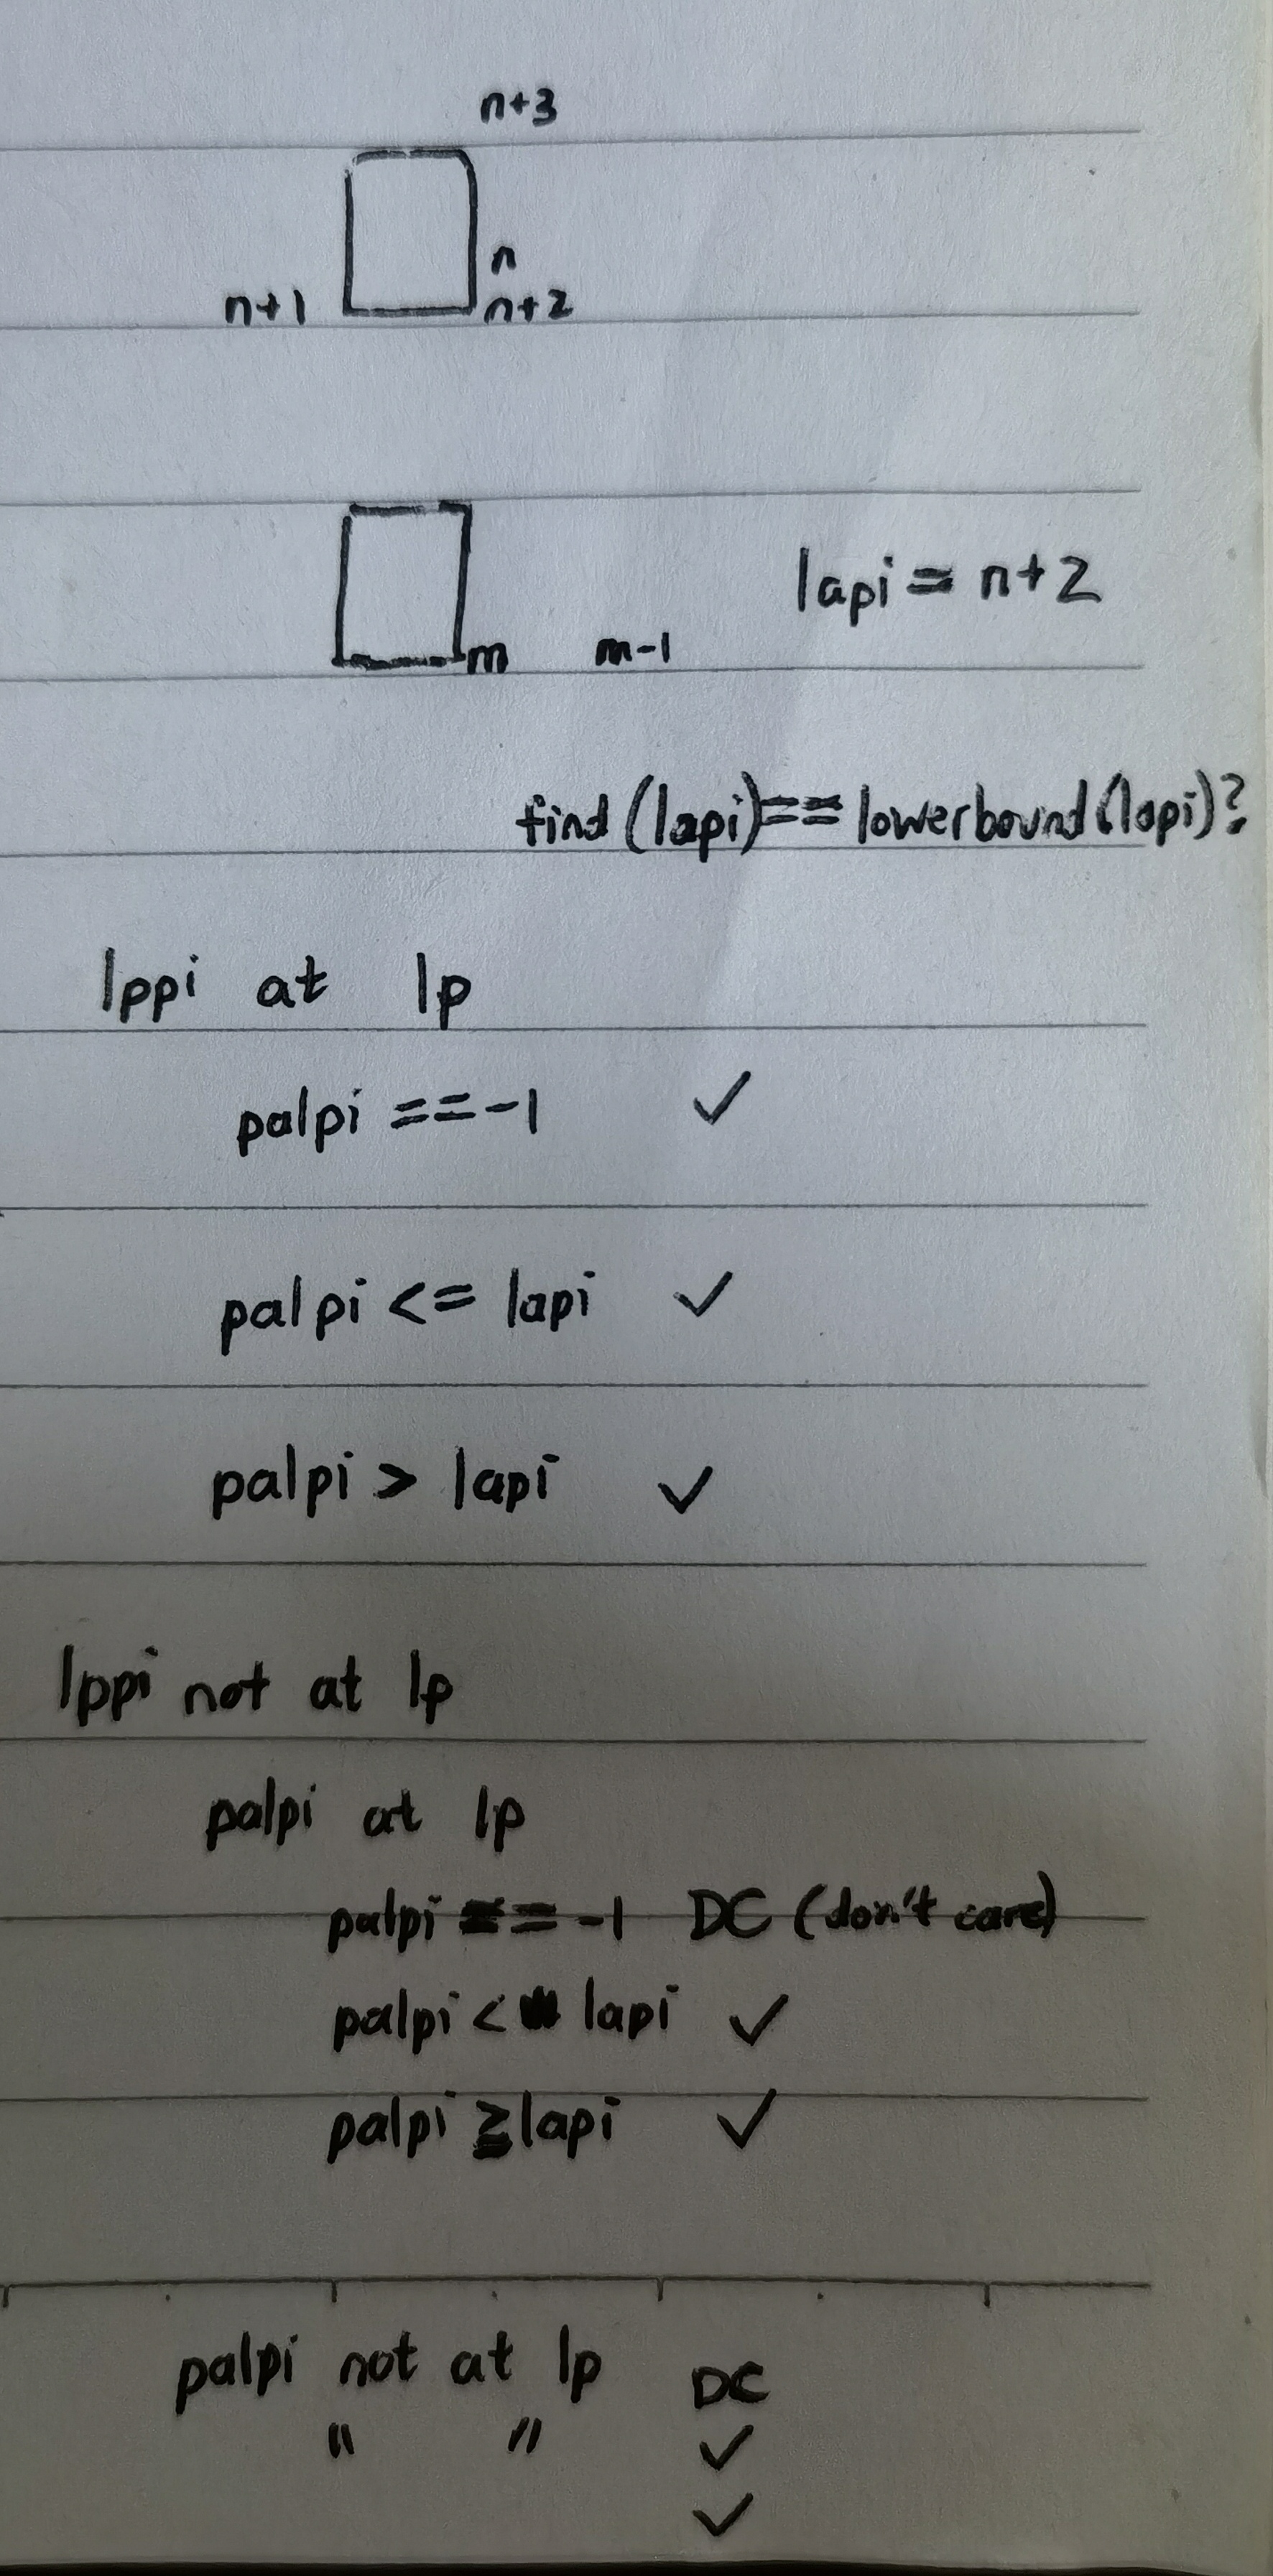 n+3
n
n+1 n+2
lapi = n+2
m m-1
find (lapi)== lowerbound(lapi)?
lppi at lp
palpi ==-1 ✓
palpi <= lapi ✓
palpi > lapi ✓
lppi not at lp
palpi at lp
palpi == -1 DC (don't care)
palpi < lapi ✓
palpi ≥ lapi ✓
palpi not at lp DC
" " ✓
✓